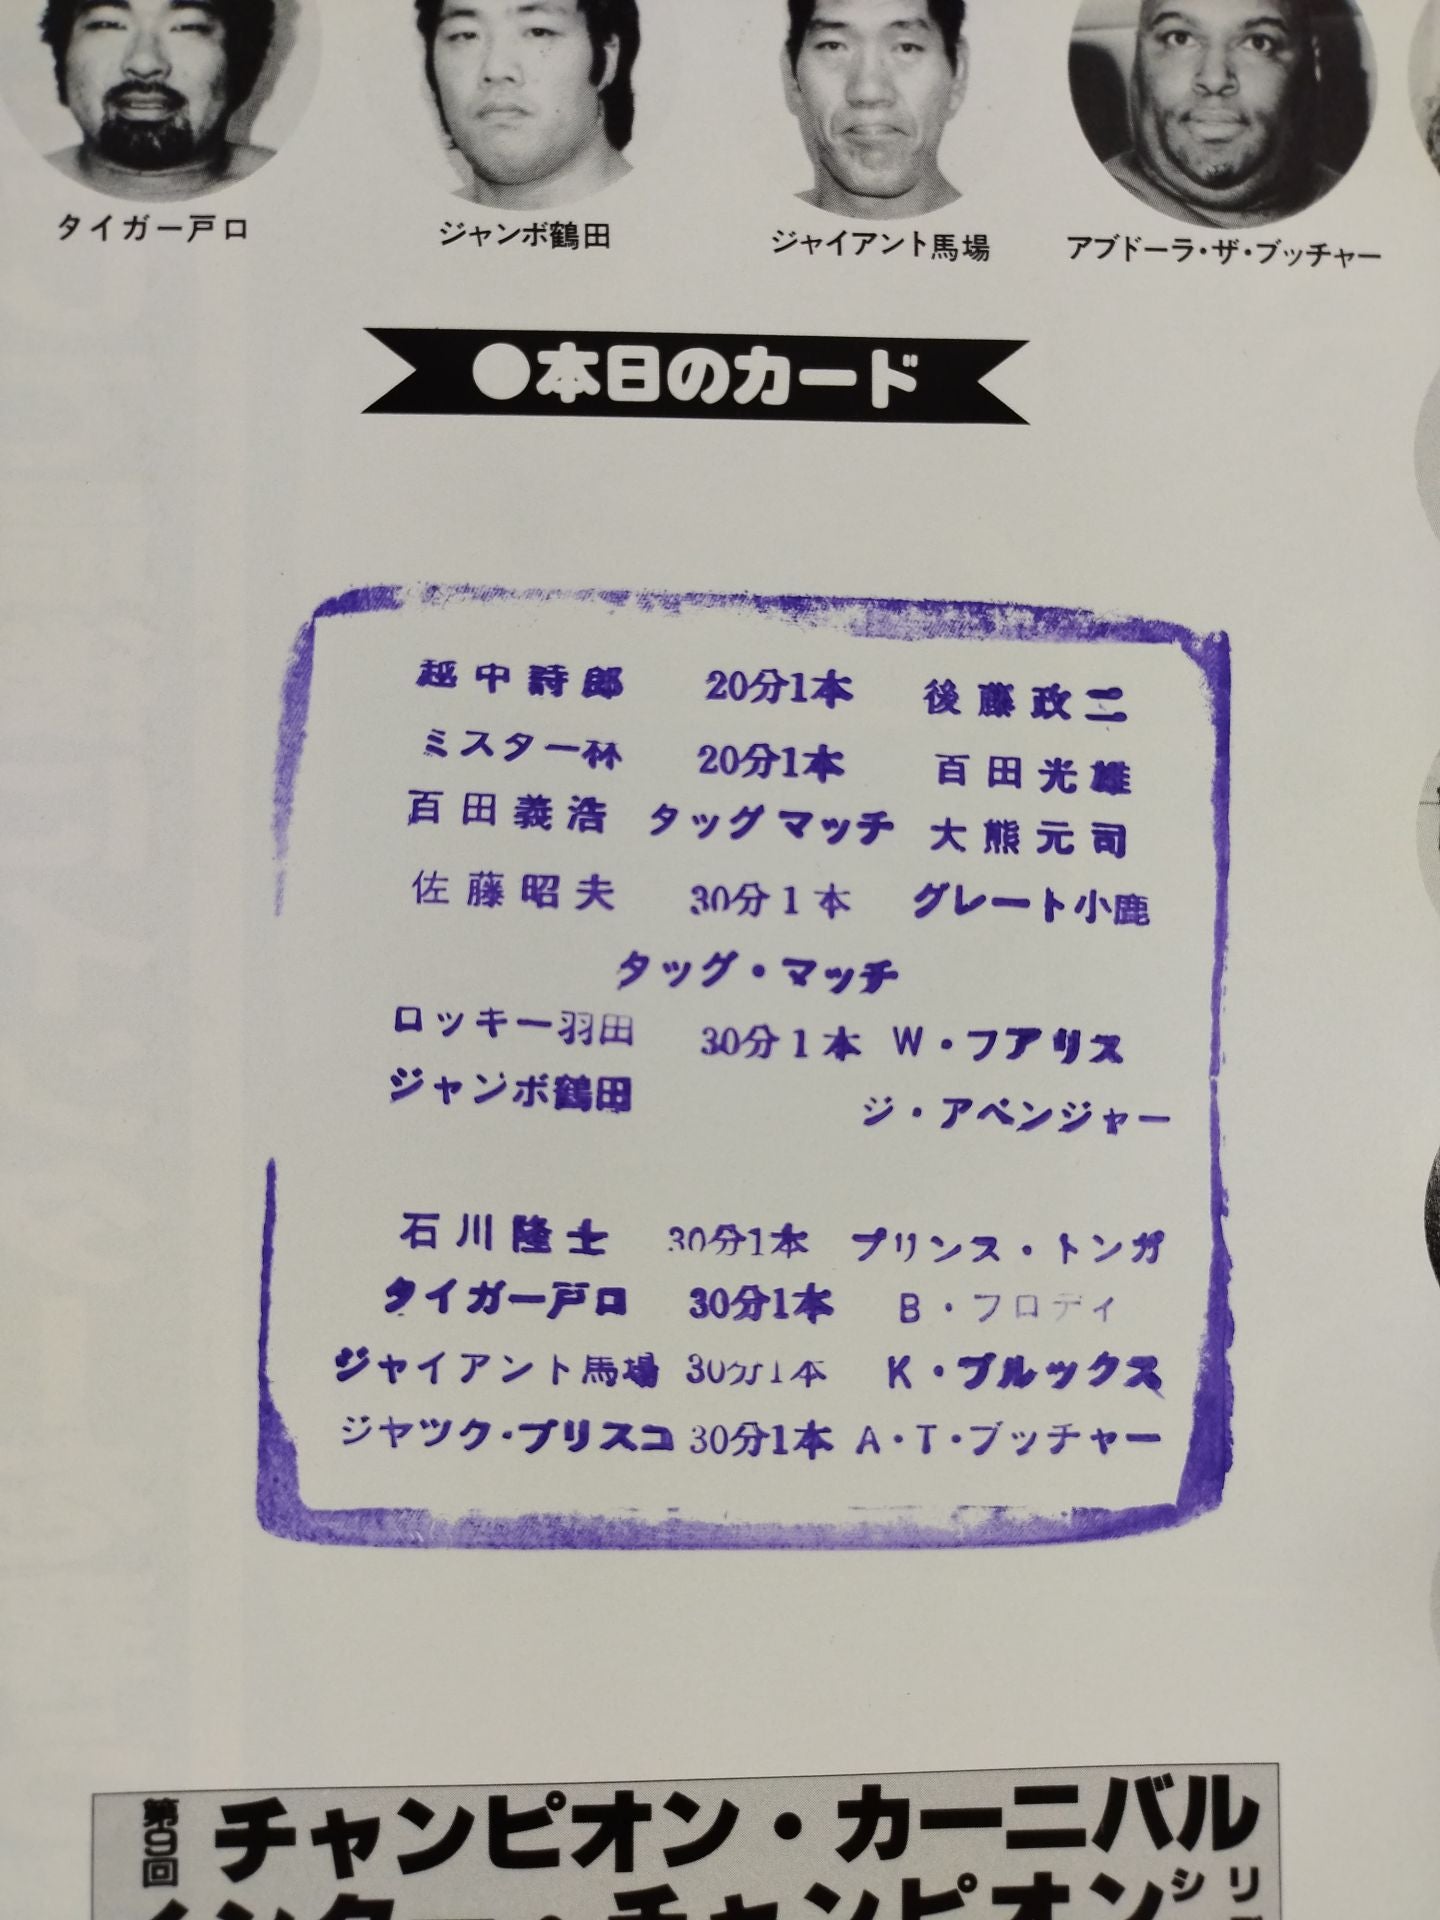 タイガー戸口 ジャンボ鶴田 ジャイアント馬場 アブドーラ・ザ・ブッチャー
●本日のカード
越中詩郎 20分1本 後藤政二
ミスター林 20分1本 百田光雄
百田義浩 タッグマッチ 大熊元司
佐藤昭夫 30分1本 グレート小鹿
タッグ・マッチ
ロッキー羽田 30分1本 W・フアリス
ジャンボ鶴田 ジ・アベンジャー
石川隆士 30分1本 プリンス・トンガ
タイガー戸口 30分1本 B・フロディ
ジャイアント馬場 30分1本 K・ブルックス
ジヤツク・ブリスコ 30分1本 A・T・ブッチャー
第9回 チャンピオン・カーニバル
チャンピオン